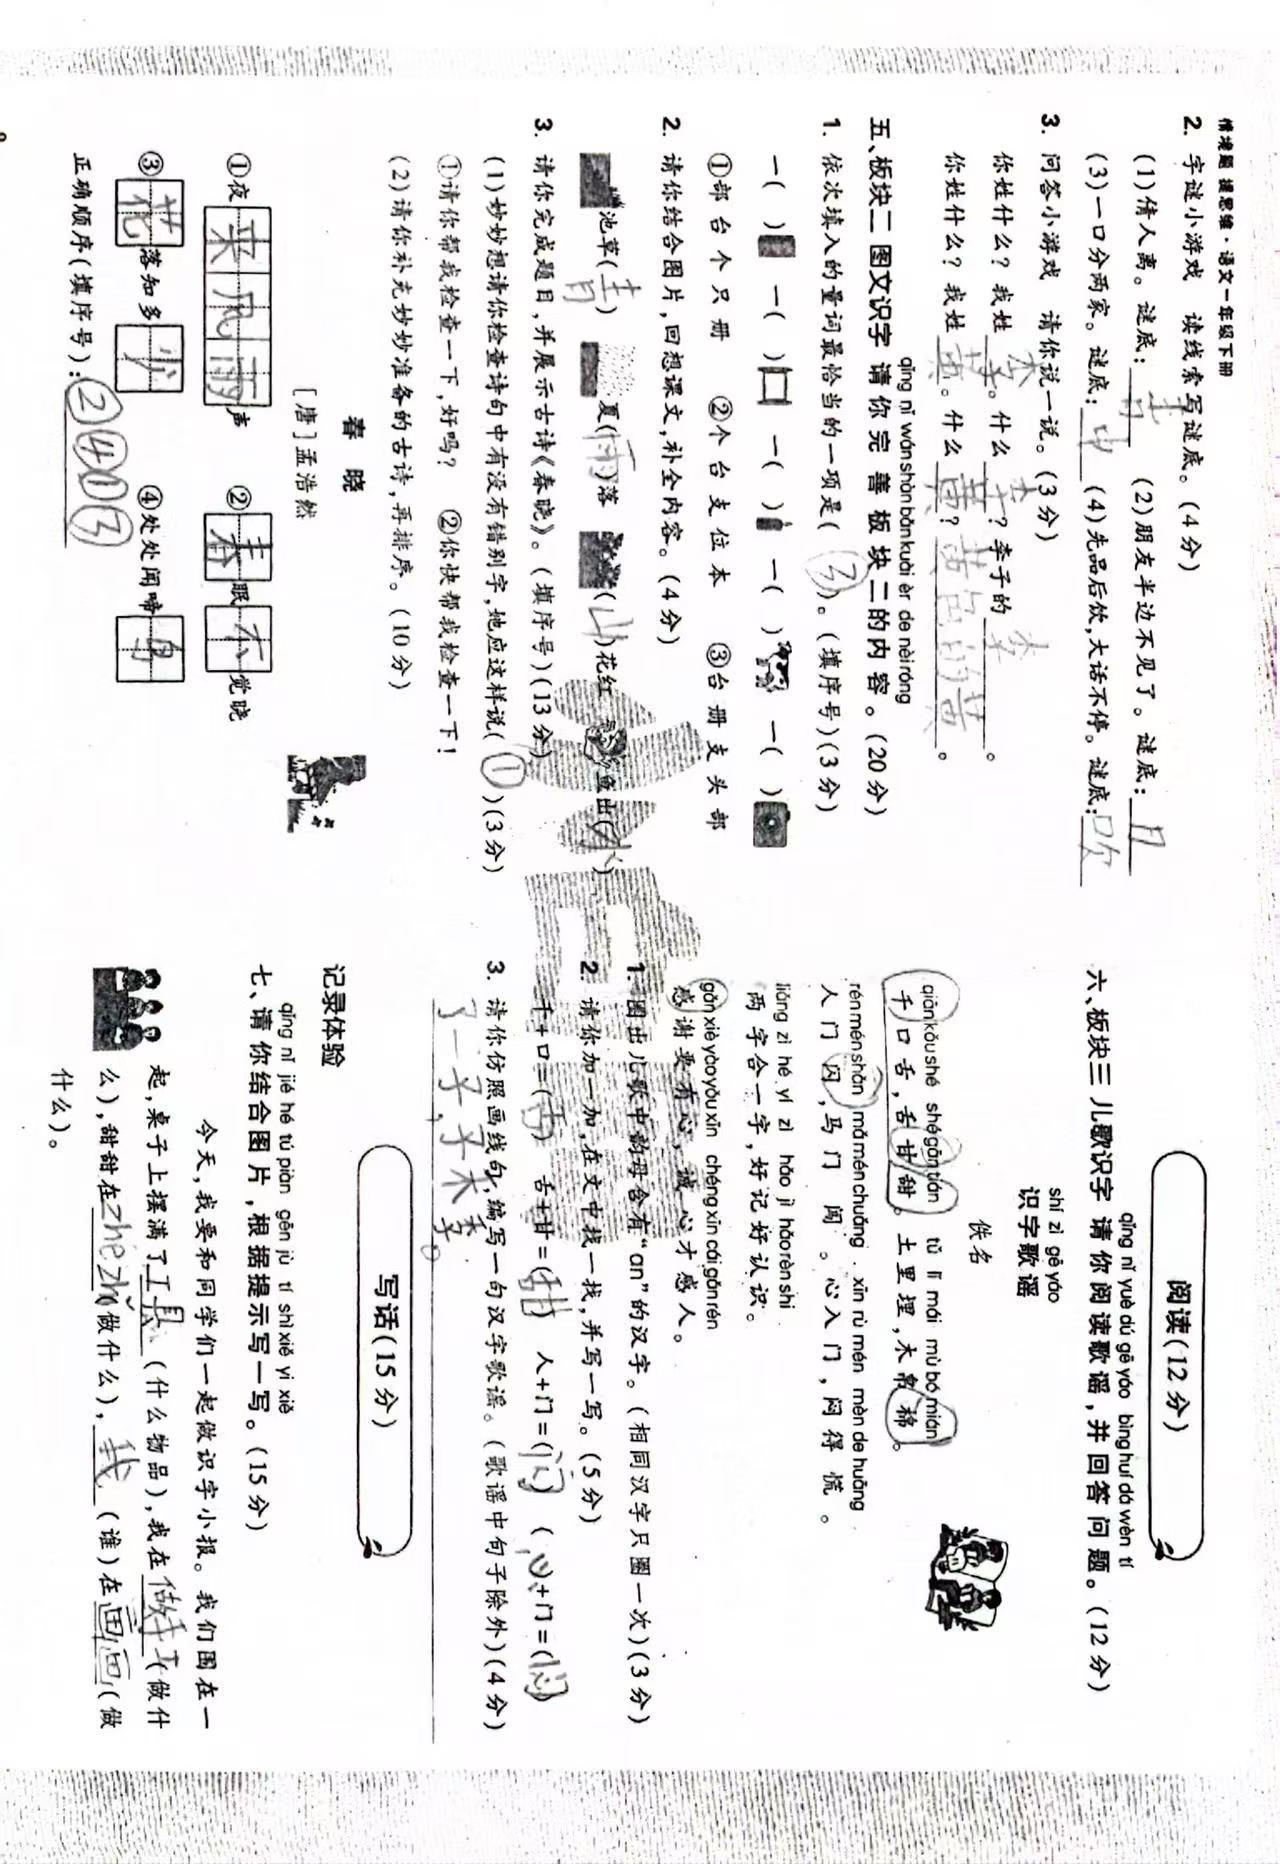 情境题 提思维·语文一年级下册
2. 字谜小游戏 读线索写谜底。(4分)
(1)倩人离。谜底:青 (2)朋友半边不见了。谜底:月
(3)一口分两家。谜底:中 (4)先品后饮,大话不停。谜底:吹
3. 问答小游戏 请你说一说。(3分)
你姓什么?我姓李。什么李?李子的李。
你姓什么?我姓黄。什么黄?黄色的黄。
qǐng nǐ wán shàn bǎn kuài èr de nèi róng
五、板块二 图文识字 请你完善板块二的内容。(20分)
1. 依次填入的量词最恰当的一项是(③)。(填序号)(3分)
一( ) 一( ) 一( ) 一( ) 一( )
①部 台 个 只 册 ②个 台 支 位 本 ③台 册 支 头 部
2. 请你结合图片,回想课文,补全内容。(4分)
池草(青) 夏(雨)落 (山)花红 鱼出(水)
3. 请你完成题目,并展示古诗《春晓》。(填序号)(13分)
(1)妙妙想请你检查诗句中有没有错别字,她应这样说(①)(3分)
①请你帮我检查一下,好吗? ②你快帮我检查一下!
(2)请你补充妙妙准备的古诗,再排序。(10分)
春 晓
[唐]孟浩然
①夜来风雨声 ②春眠不觉晓
③花落知多少 ④处处闻啼鸟
正确顺序(填序号):②④①③
阅读(12分)
qǐng nǐ yuè dú gē yáo bìng huí dá wèn tí
六、板块三 儿歌识字 请你阅读歌谣,并回答问题。(12分)
shí zì gē yáo
识字歌谣
佚名
qiān kǒu shé shé gān tián tǔ lǐ mái mù bó mián
千口舌,舌甘甜。土里埋,木帛棉。
rén mén shǎn mǎ mén chuǎng xīn rù mén mèn de huāng
人门闪,马门闯。心入门,闷得慌。
liǎng zì hé yí zì hǎo jì hǎo rèn shi
两字合一字,好记好认识。
gǎn xiè yào yǒu xīn chéng xīn cái gǎn rén
感谢要有心,诚心才感人。
1. 圈出儿歌中韵母含有“an”的汉字。(相同汉字只圈一次)(3分)
2. 请你加一加,在文中找一找,并写一写。(5分)
千+口=(舌) 舌+甘=(甜) 人+门=(闪) (心)+门=(闷)
3. 请你仿照画线句,编写一句汉字歌谣。(歌谣中句子除外)(4分)
了一子,子木李。
写话(15分)
记录体验
qǐng nǐ jié hé tú piàn gēn jù tí shì xiě yi xiě
七、请你结合图片,根据提示写一写。(15分)
今天,我要和同学们一起做识字小报。我们围在一
起,桌子上摆满了工具(什么物品),我在做手工(做什
么),甜甜在zhe zhǐ(做什么),我(谁)在画画(做
什么)。